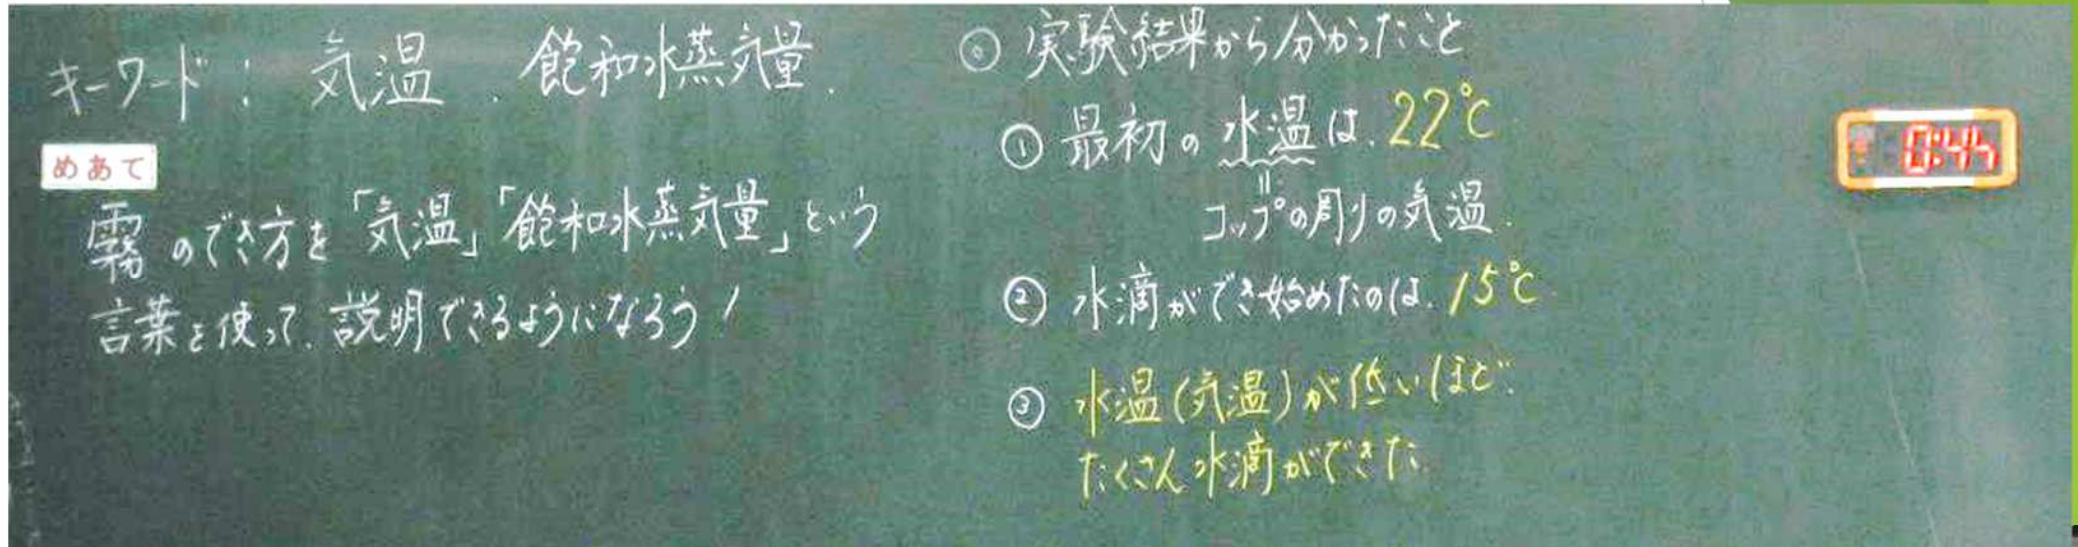 キーワード：気温．飽和水蒸気量．
めあて
霧のでき方を「気温」「飽和水蒸気量」という
言葉を使って．説明できるようになろう！
◎ 実験結果から分かったこと
① 最初の水温は．22℃
〃
コップの周りの気温．
② 水滴ができ始めたのは．15℃
③ 水温(気温)が低いほど．
たくさん水滴ができた